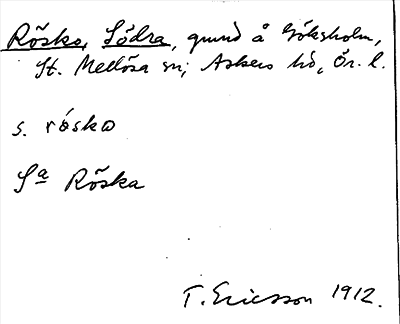 Röskо, Södra, grund å Göksholm,
St. Mellösa sn, Askers hd, Ör. l.
s. rósko
Sª Röska
T. Ericsson 1912.